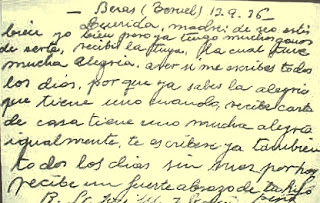 — Beras (Teruel) 12.9.36 —
Querida, madre: de seo estes
bien yo bien pero ya tengo muchas ganas
de serte, recibi la tuya, la cual tuve
mucha alegria, aver si me escribes todos
los dias, porque ya sabes la alegria
que tiene uno cuando, recibe carta
de casa tiene uno mucha alegria
igualmente, te escribere ya tambien
todos los dias sin mas por hoy
recibe un fuerte abrazo de tu hijo